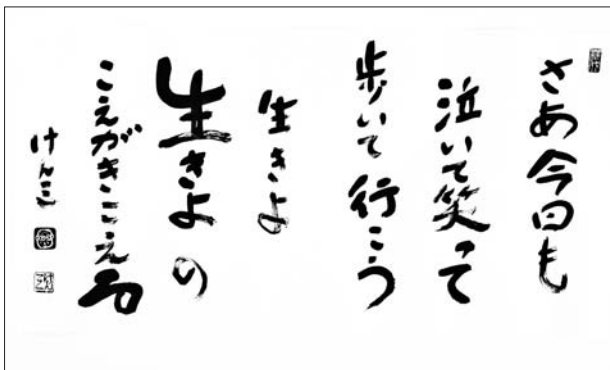 さあ今日も
泣いて笑って
歩いて行こう
生きよ
生きよの
こえがきこえる